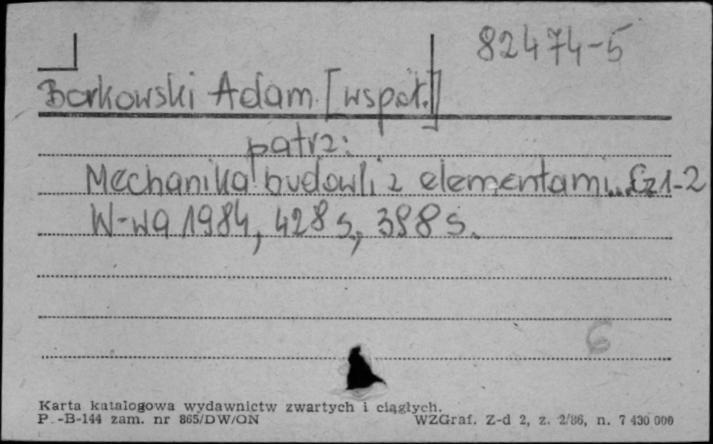 82474-5
Borkowski Adam [współ.]
patrz:
Mechanika budowli z elementami... Cz 1-2
W-wa 1984, 428 s., 388 s.
6
Karta katalogowa wydawnictw zwartych i ciągłych.
P.-B-144 zam. nr 865/DW/ON WZGraf. Z-d 2, z. 2/86, n. 7 430 000